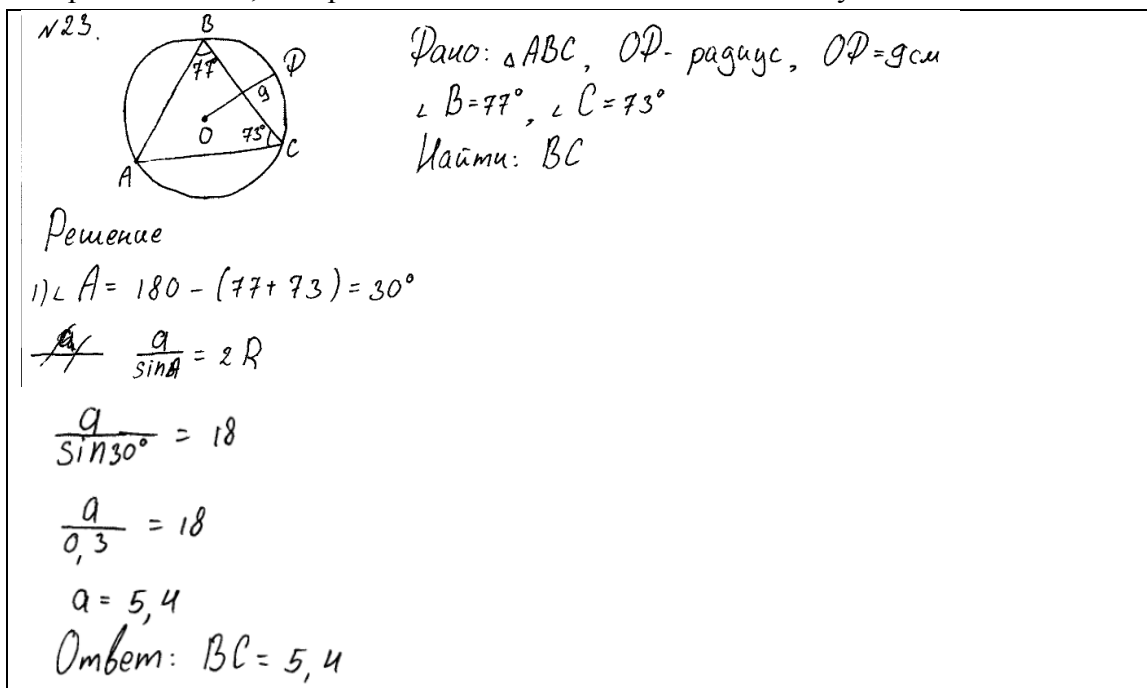 №23.
B
77°
D
9
O
73°
C
A
Дано: △ABC, OD- радиус, OD=9см
∠ B=77°, ∠ C=73°
Найти: BC
Решение
1)∠ A= 180 - (77+ 73)= 30°
a/sinA = 2R
a/sin30° = 18
a/0,3 = 18
a= 5,4
Ответ: BC= 5,4